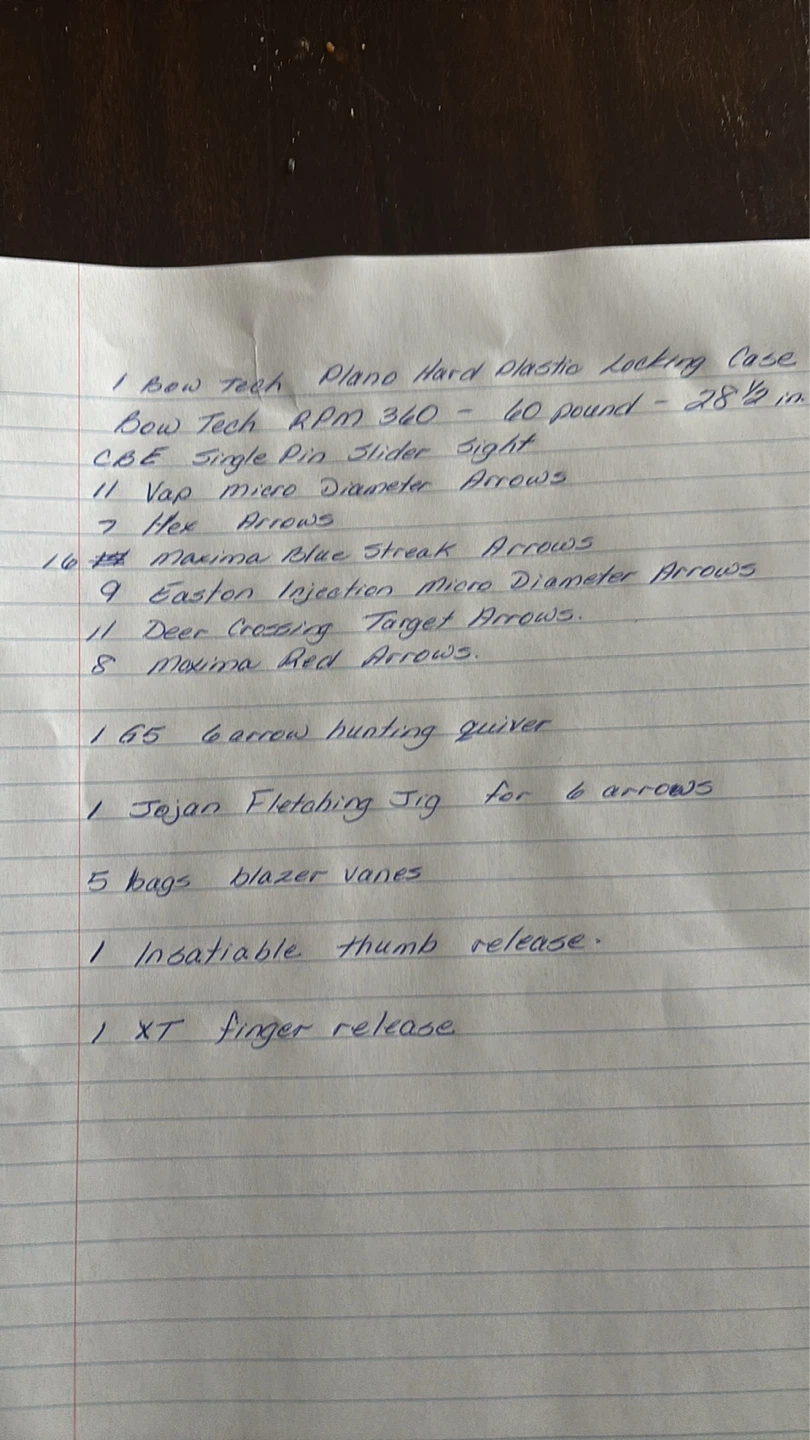 1 Bow Tech Plano Hard Plastic Locking Case
Bow Tech RPM 360 - 60 pound - 28 1/2 in.
CBE Single Pin Slider Sight
11 Vap micro Diameter Arrows
7 Hex Arrows
16 Maxima Blue Streak Arrows
9 Easton Injection Micro Diameter Arrows
11 Deer Crossing Target Arrows.
8 Maxima Red Arrows.
1 G5 6 arrow hunting quiver
1 Jojan Fletching Jig for 6 arrows
5 bags blazer vanes
1 Insatiable thumb release.
1 XT finger release